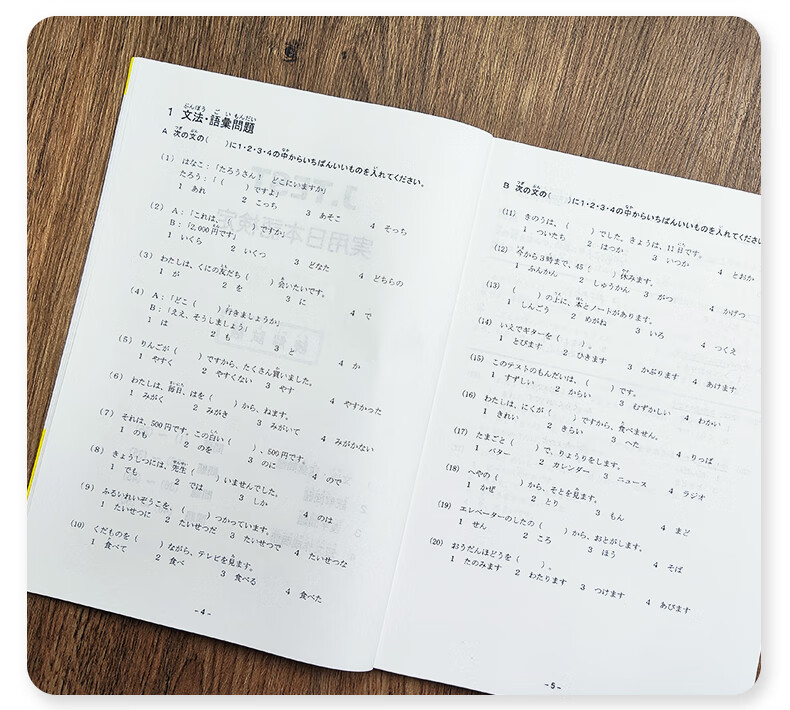 1 文法・語彙問題
A 次の文の( )に1・2・3・4の中からいちばんいいものを入れてください。
(1) はなこ：「たろうさん！ どこにいますか」
たろう：「( )ですよ」
1 あれ 2 こっち 3 あそこ 4 そっち
(2) A：「これは、( )ですか」
B：「2,000円です」
1 いくら 2 いくつ 3 どなた 4 どちらの
(3) わたしは、くにの友だち( )会いたいです。
1 が 2 を 3 に 4 で
(4) A：「どこ( )行きましょうか」
B：「ええ、そうしましょう」
1 は 2 も 3 と 4 か
(5) りんごが( )ですから、たくさん買いました。
1 やすく 2 やすくない 3 やす 4 やすかった
(6) わたしは、毎日、はを( )から、ねます。
1 みがく 2 みがき 3 みがいて 4 みがかない
(7) それは、500円です。この白い( )、500円です。
1 のも 2 のを 3 のに 4 ので
(8) きょうしつには、先生( )いませんでした。
1 でも 2 では 3 しか 4 のは
(9) ふるいれいぞうこを、( )つかっています。
1 たいせつに 2 たいせつだ 3 たいせつで 4 たいせつな
(10) くだものを( )ながら、テレビを見ます。
1 食べて 2 食べ 3 食べる 4 食べた
- 4 -
B 次の文の( )に1・2・3・4の中からいちばんいいものを入れてください
(11) きのうは、( )でした。きょうは、11日です。
1 ついたち 2 はつか 3 いつか 4 とおか
(12) 今から3時まで、45( )休みます。
1 ふんかん 2 しゅうかん 3 がつ 4 かげつ
(13) ( )の上に、本とノートがあります。
1 しんごう 2 めがね 3 いろ 4 つくえ
(14) いえでギターを( )。
1 とびます 2 ひきます 3 かぶります 4 あけます
(15) このテストのもんだいは、( )です。
1 すずしい 2 からい 3 むずかしい 4 わかい
(16) わたしは、にくが( )ですから、食べません。
1 きれい 2 きらい 3 へた 4 りっぱ
(17) たまごと( )で、りょうりをします。
1 バター 2 カレンダー 3 ニュース 4 ラジオ
(18) へやの( )から、そとを見ます。
1 かぜ 2 とり 3 もん 4 まど
(19) エレベーターのしたの( )から、おとがします。
1 せん 2 ころ 3 ほう 4 そば
(20) おうだんほどうを( )。
1 たのみます 2 わたります 3 つけます 4 あびます
- 5 -